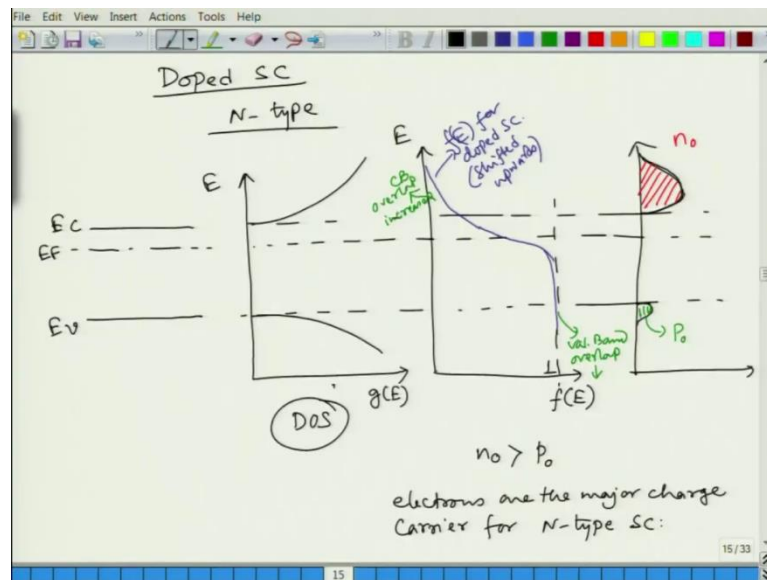 File Edit View Insert Actions Tools Help
B I
Doped SC
N-type
E
EC
EF
Ev
g(E)
DOS
E
f(E) for
doped SC.
(shifted
upwards)
CB
overlap
increases
val. Band
overlap
↓
1
f(E)
n₀
P₀
n₀ > P₀
electrons are the major charge
Carrier for N-type SC:
15/33
15